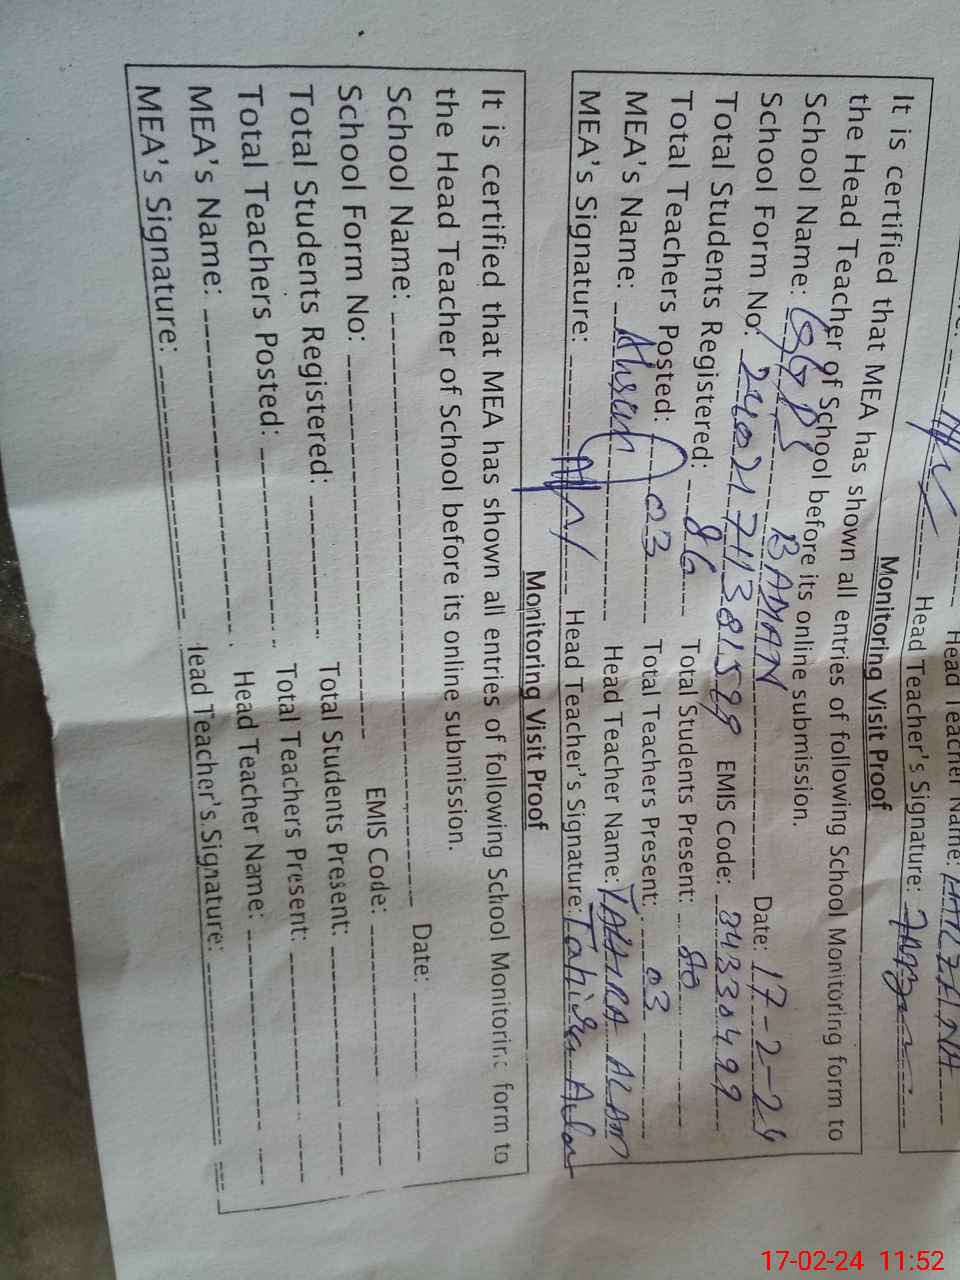 Head Teacher Name:
Head Teacher's Signature:
Monitoring Visit Proof
It is certified that MEA has shown all entries of following School Monitoring form to
the Head Teacher of School before its online submission.
School Name: GGPS BADIAN Date: 17-2-24
School Form No: EMIS Code: 34330499
Total Students Registered: 86 Total Students Present: 80
Total Teachers Posted: 03 Total Teachers Present: 03
MEA's Name: Ahsan Head Teacher Name: TAHIRA ALAM
MEA's Signature: Head Teacher's Signature: Tahira Alam
Monitoring Visit Proof
It is certified that MEA has shown all entries of following School Monitoring form to
the Head Teacher of School before its online submission.
School Name: Date:
School Form No: EMIS Code:
Total Students Registered: Total Students Present:
Total Teachers Posted: Total Teachers Present:
MEA's Name: Head Teacher Name:
MEA's Signature: Head Teacher's Signature:
17-02-24 11:52